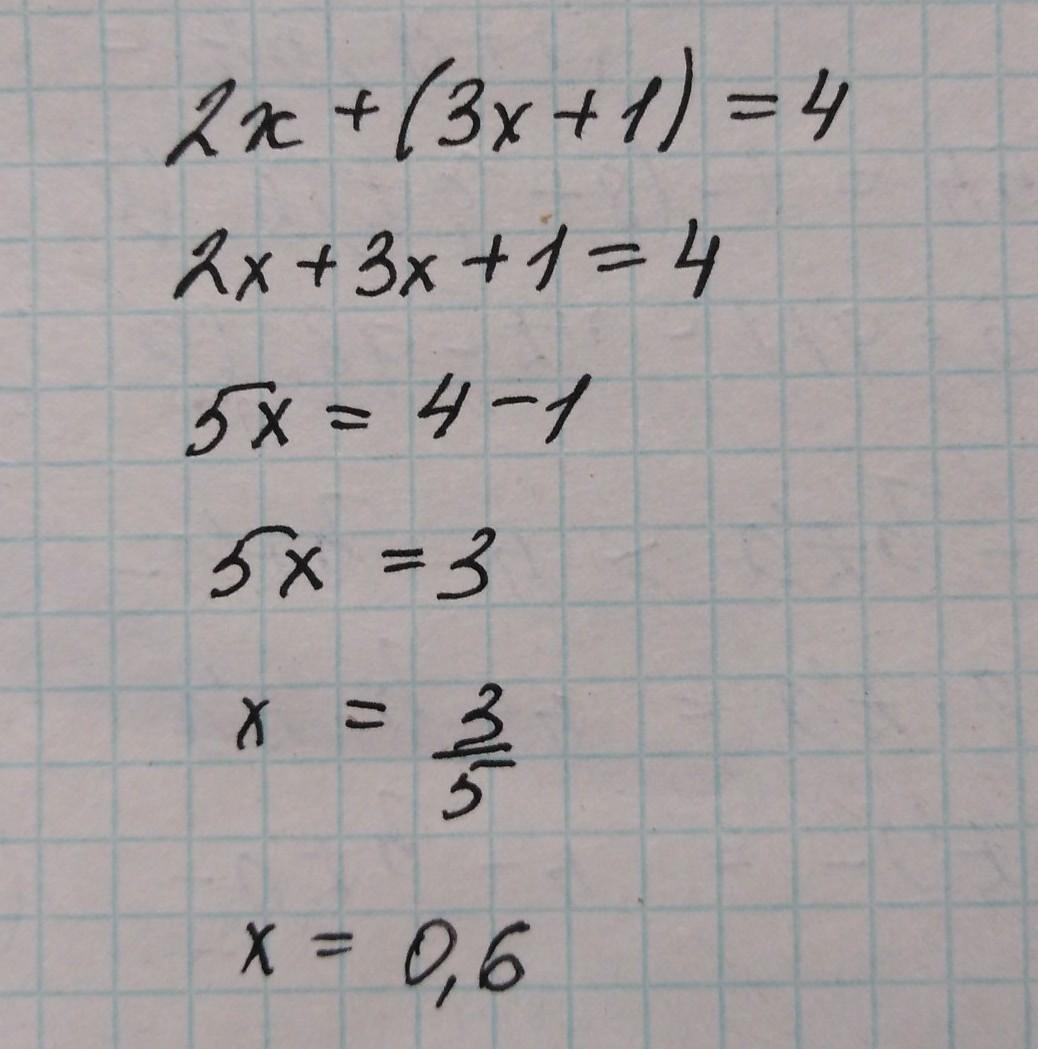 2x + (3x + 1) = 4
2x + 3x + 1 = 4
5x = 4 - 1
5x = 3
x = 3/5
x = 0,6